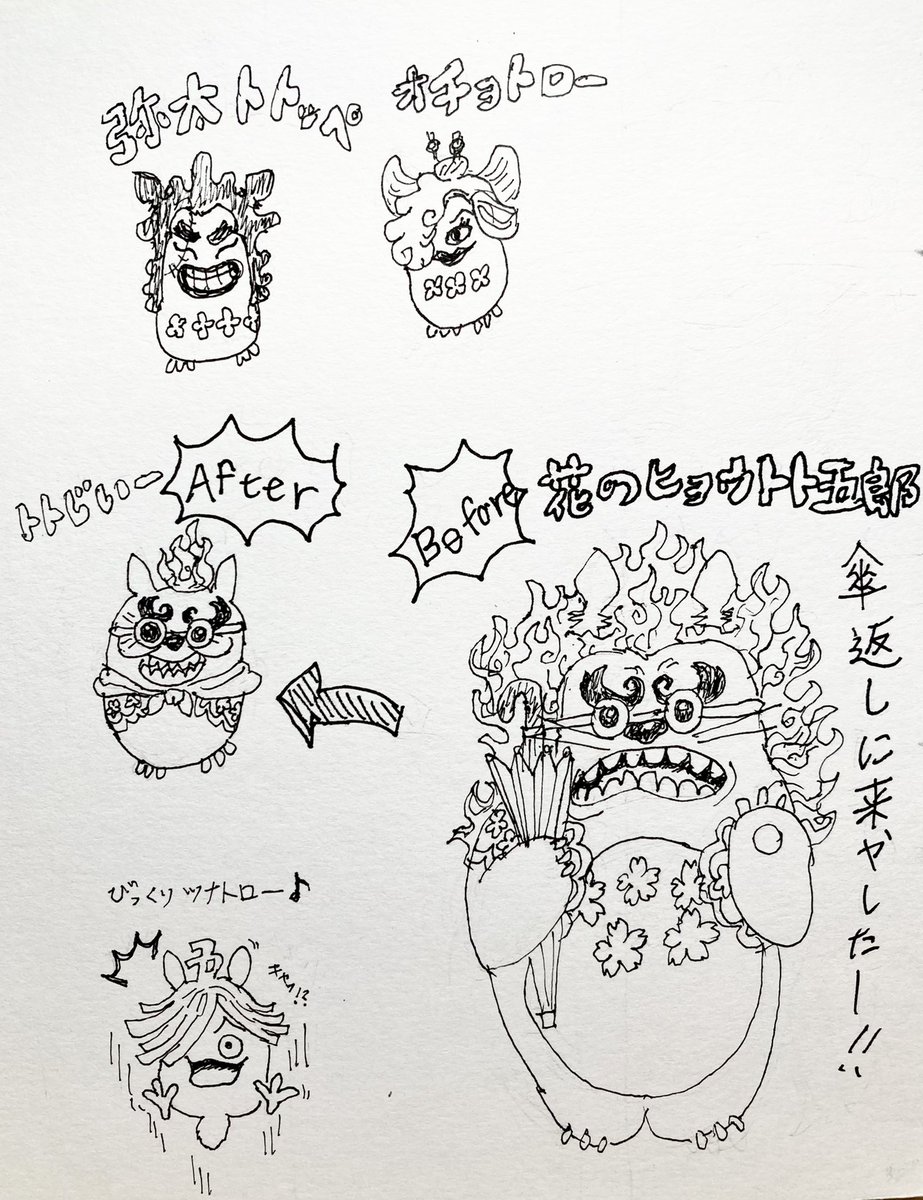 弥太トトッペ
オチョトロー
トトじぃー
After
Before
花のヒョウトト五郎
傘返しに来やしたー!!
びっくりツナトロー♪
五
キャイ!?